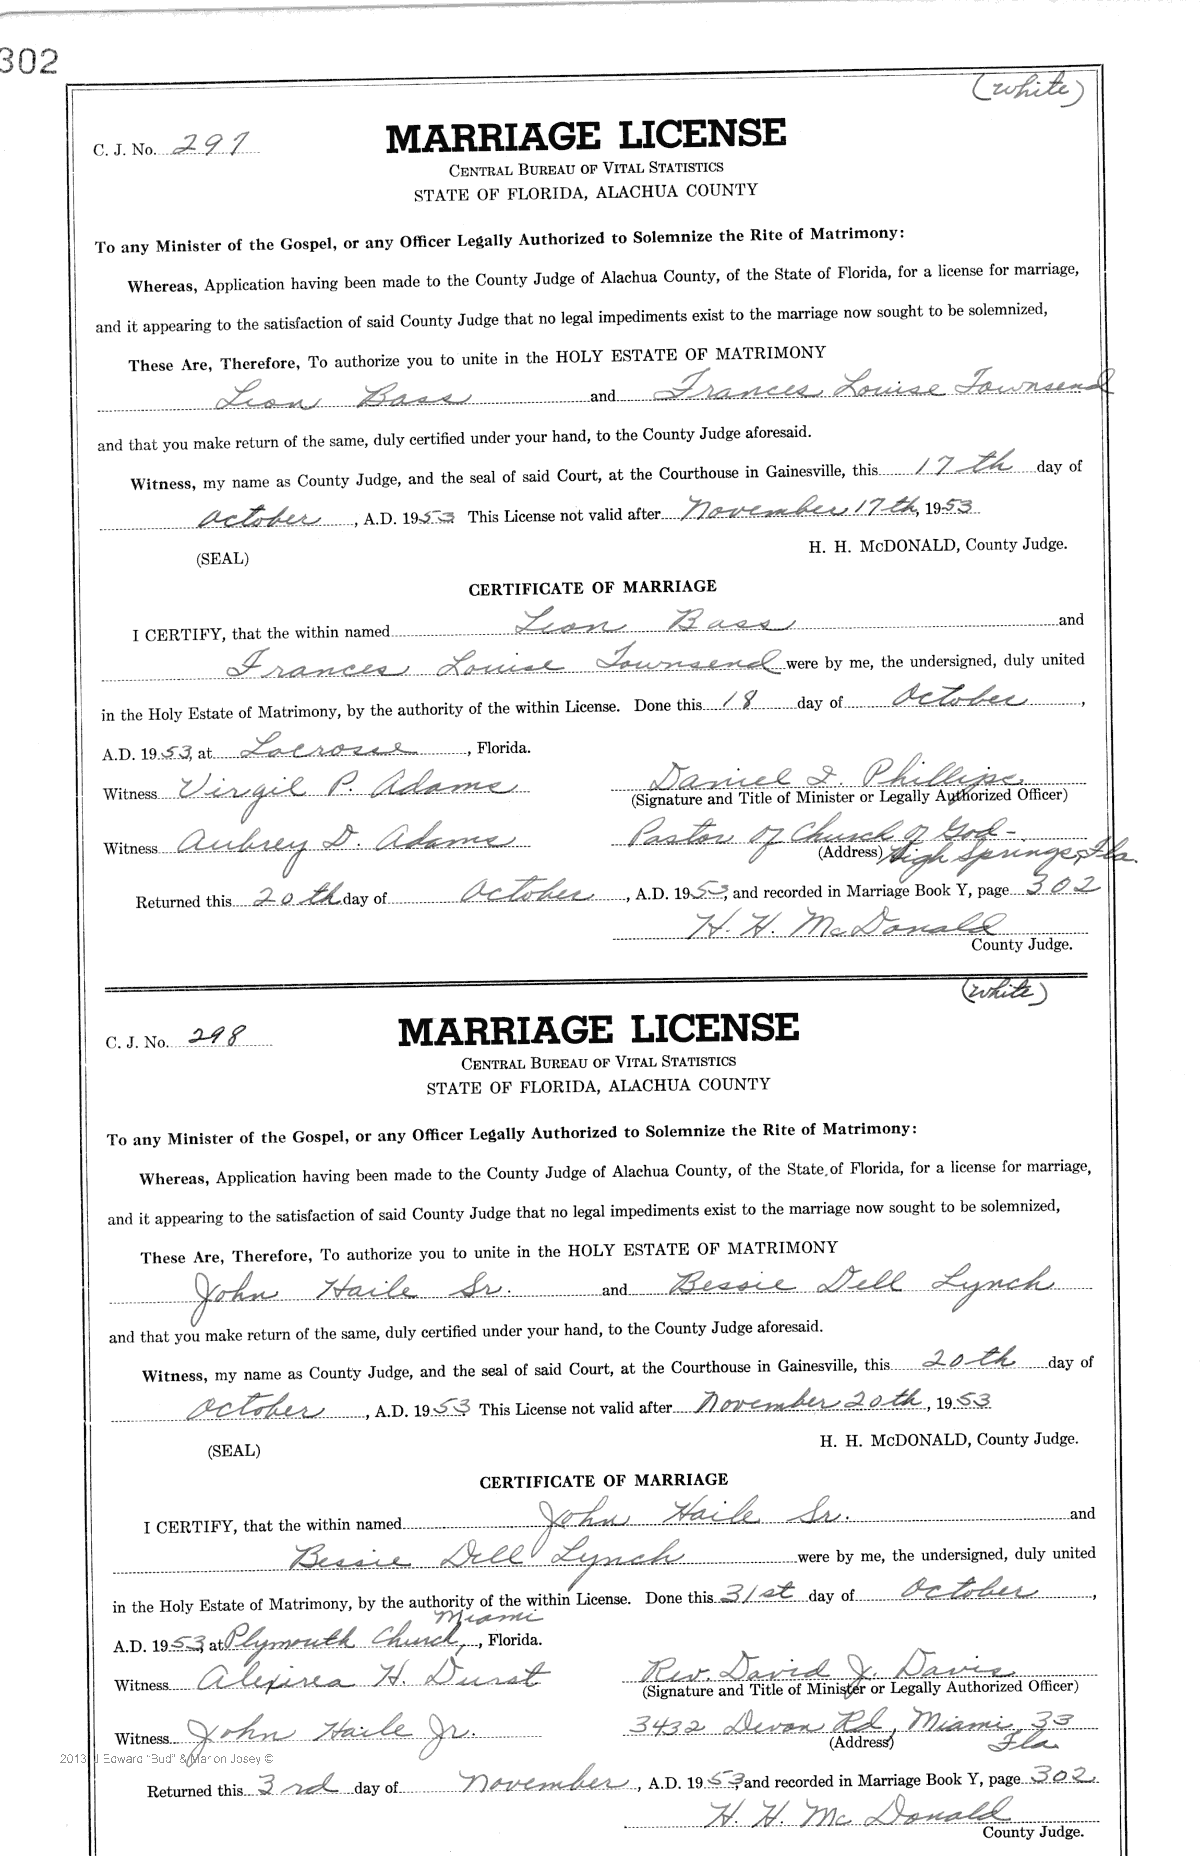 302
(white)
C. J. No. 297
MARRIAGE LICENSE
CENTRAL BUREAU OF VITAL STATISTICS
STATE OF FLORIDA, ALACHUA COUNTY
To any Minister of the Gospel, or any Officer Legally Authorized to Solemnize the Rite of Matrimony:
Whereas, Application having been made to the County Judge of Alachua County, of the State of Florida, for a license for marriage,
and it appearing to the satisfaction of said County Judge that no legal impediments exist to the marriage now sought to be solemnized,
These Are, Therefore, To authorize you to unite in the HOLY ESTATE OF MATRIMONY
Leon Bass and Frances Louise Townsend
and that you make return of the same, duly certified under your hand, to the County Judge aforesaid.
Witness, my name as County Judge, and the seal of said Court, at the Courthouse in Gainesville, this 17th day of
October, A.D. 1953 This License not valid after November 17th, 1953
(SEAL) H. H. McDONALD, County Judge.
CERTIFICATE OF MARRIAGE
I CERTIFY, that the within named Leon Bass and
Frances Louise Townsend were by me, the undersigned, duly united
in the Holy Estate of Matrimony, by the authority of the within License. Done this 18 day of October,
A.D. 1953, at Lacrosse, Florida.
Witness Virgil P. Adams Daniel I. Phillips
(Signature and Title of Minister or Legally Authorized Officer)
Witness Aubrey D. Adams Pastor of Church of God-
(Address) High Springs, Fla.
Returned this 20th day of October, A.D. 1953, and recorded in Marriage Book Y, page 302
H. H. McDonald
County Judge.
(white)
C. J. No. 298
MARRIAGE LICENSE
CENTRAL BUREAU OF VITAL STATISTICS
STATE OF FLORIDA, ALACHUA COUNTY
To any Minister of the Gospel, or any Officer Legally Authorized to Solemnize the Rite of Matrimony:
Whereas, Application having been made to the County Judge of Alachua County, of the State of Florida, for a license for marriage,
and it appearing to the satisfaction of said County Judge that no legal impediments exist to the marriage now sought to be solemnized,
These Are, Therefore, To authorize you to unite in the HOLY ESTATE OF MATRIMONY
John Haile Sr. and Bessie Dell Lynch
and that you make return of the same, duly certified under your hand, to the County Judge aforesaid.
Witness, my name as County Judge, and the seal of said Court, at the Courthouse in Gainesville, this 20th day of
October, A.D. 1953 This License not valid after November 20th, 1953
(SEAL) H. H. McDONALD, County Judge.
CERTIFICATE OF MARRIAGE
I CERTIFY, that the within named John Haile Sr. and
Bessie Dell Lynch were by me, the undersigned, duly united
in the Holy Estate of Matrimony, by the authority of the within License. Done this 31st day of October,
Miami
A.D. 1953, at Plymouth Church, Florida.
Witness Alexirea H. Durst Rev. David J. Davis
(Signature and Title of Minister or Legally Authorized Officer)
Witness John Haile Jr. 3432 Devon Rd, Miami, 33
(Address) Fla.
2013 J Edward "Bud" & Marion Josey ©
Returned this 3rd day of November, A.D. 1953, and recorded in Marriage Book Y, page 302
H. H. McDonald
County Judge.